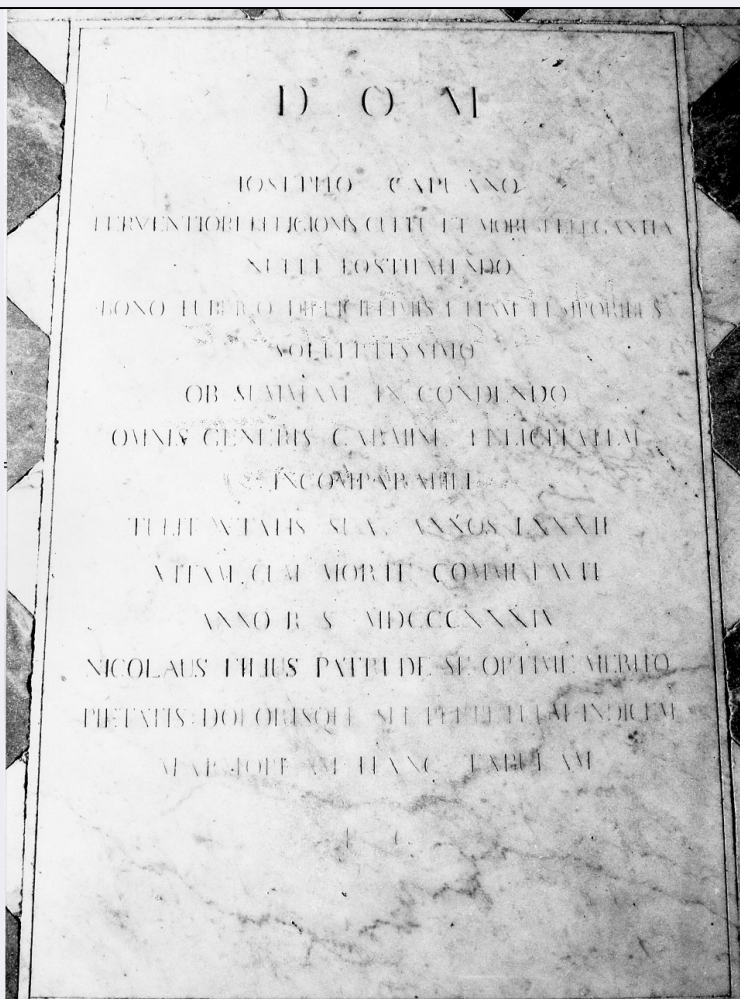 D O M
IOSEPHO CAPUANO
FERVENTIORI RELIGIONIS CULTU ET MORUM ELEGANTIA
NULLI POSTHABENDO
BONO PUBLICO DIFFICILLIMIS ETIAM TEMPORIBUS
SOLLERTISSIMO
OB SUMMAM IN CONDENDO
OMNIS GENERIS CARMINE FELICITATEM
INCOMPARABILI
TULIT ÆTATIS SUÆ ANNOS LXXXII
VITAM CUM MORTE COMMUTAVIT
ANNO R S MDCCCXXXIV
NICOLAUS FILIUS PATRI DE SE OPTIME MERITO
PIETATIS DOLORISQUE SUI PERPETUUM INDICEM
MARMOREAM HANC TABULAM
P C